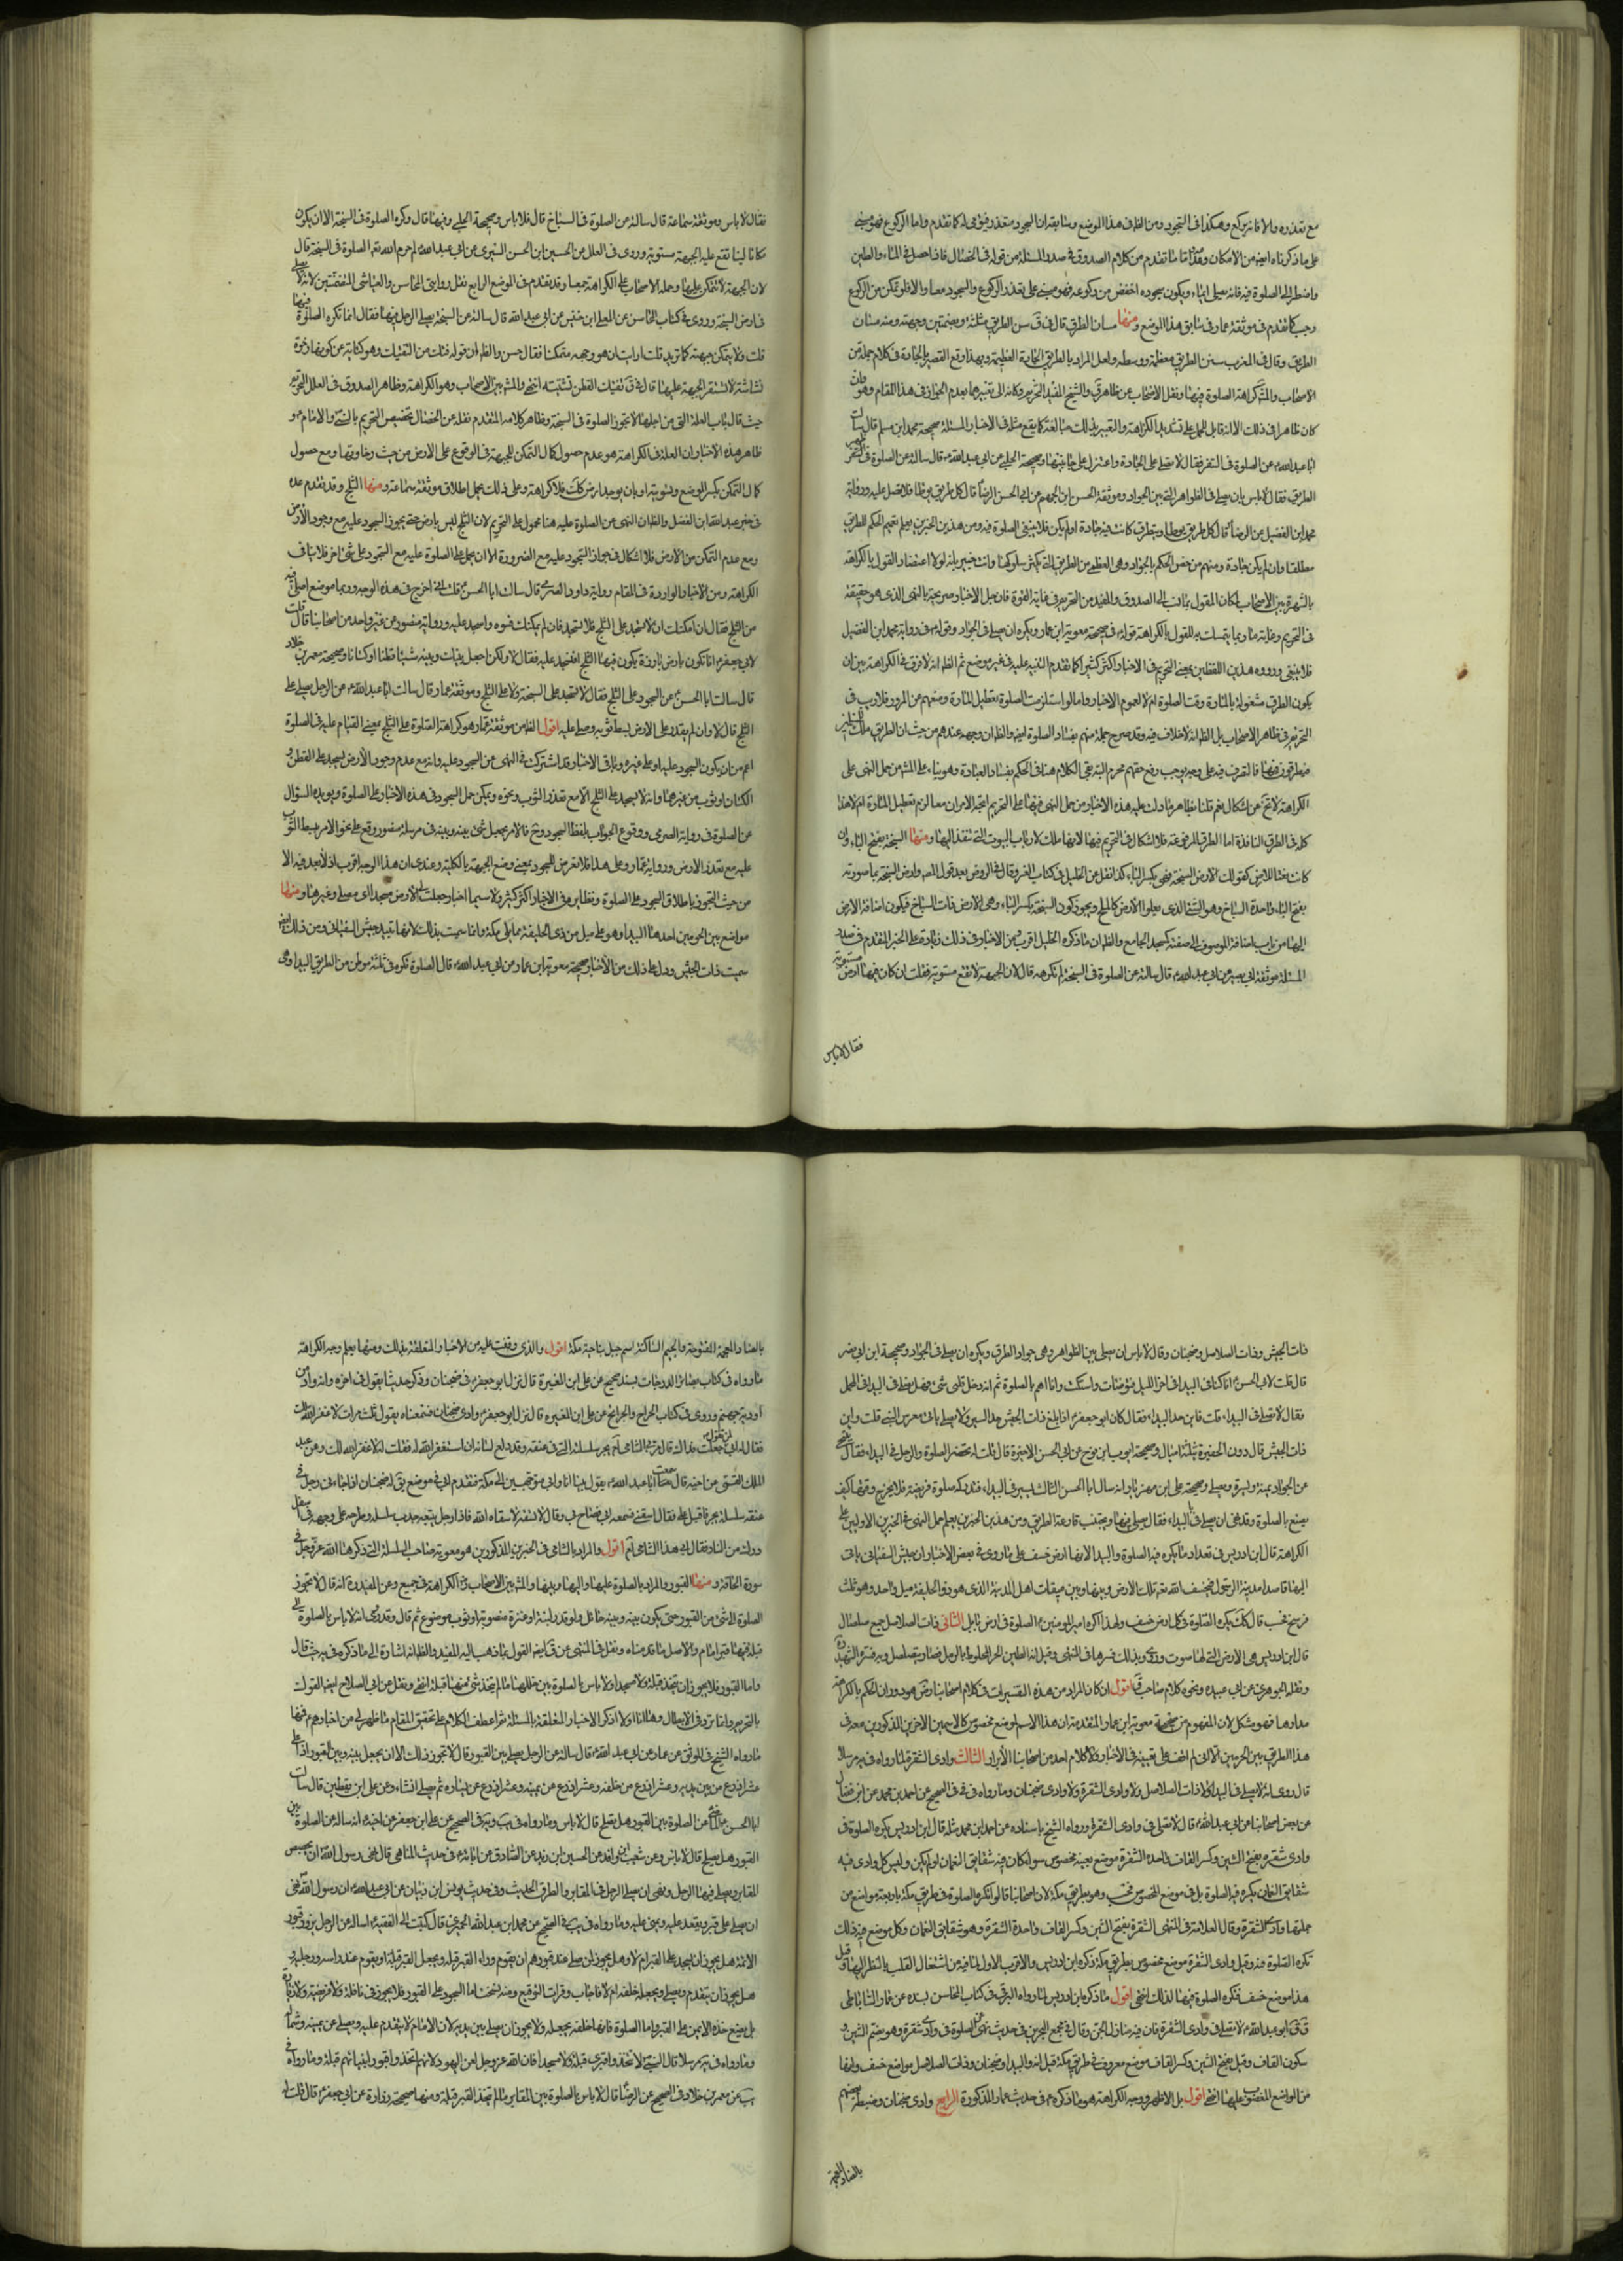 مع تعذره والا فانه يركع وهكذا في السجود ومن الظاهر في هذا الموضع وسابقه ان السجود متعذر فيومى له كما تقدم واما الركوع فهو مبنى
على ما ذكرناه ايضا من الامكان وقد تقدم من كلام الصدوق في صدر المسئلة من قوله في الخصال فاذا حصل في الماء والطين
واضطر الى الصلوة فيه فانه يصلى ايماء ويكون سجوده اخفض من ركوعه فهو مبنى على تعذر الركوع والسجود معا والا فلو تمكن من الركوع
وجب كما تقدم في موثقة عمار في سابق هذا الموضع ومنها مسان الطرق قال في ق سن الطريق مثلثة وبضمتين وجهته ومنه مسان
الطريق وقال في المغرب سنن الطريق معظمه ووسطه ولعل المراد بالطريق العظيمة وبهذا وقع القصد بالجادة في كلام جملة من
الاصحاب والمش كراهة الصلوة فيها ونقل الاصحاب عن ظاهر ق والشيخ المفيد التحريم وكانه الى تعبيرهما بعدم الجواز في هذا المقام وهو وان
كان ظاهرا في ذلك الا انه قابل للحمل على تشديد الكراهة والتعبير بذلك مبالغة كما يقع مثله في الاخبار المسئلة صحيحة محمد ابن مسلم قال سالت
ابا عبد الله ع عن الصلوة في السفر فقال لا تصل على الجادة واعتزل على جانبيها وصحيحة الحلبي عن ابي عبد الله ع قال سالته عن الصلوة في ظهر
الطريق فقال لا باس بان يصلى في الظواهر التى بين الجواد وموثقة الحسن ابن الجهم عن ابي الحسن الرضا قال كل طريق يوطا فلا تصل عليه ورواية
محمد ابن الفضيل عن الرضا قال كل طريق يوطا ويتطرق كانت فيه جادة او لم يكن فلا ينبغى الصلوة فيه ومن هذين الخبرين يعلم تعميم الحكم للطريق
مطلقا وان لم يكن جادة ومنهم من خص الحكم بالجواد وهى العظمى من الطريق التى يكثر سلوكها وانت خبير بانه لولا اعتضاد القول بالكراهة
بالشهرة بين الاصحاب لكان القول بما ذهب اليه الصدوق والمفيد من التحريم في غاية القوة فان جل الاخبار صريحة بالنهى الذى هو حقيقة
في التحريم وغاية ما ربما يتمسك به للقول بالكراهة قوله في صحيحة معوية ابن عمار ويكره ان يصلى في الجواد وقوله في رواية محمد ابن الفضيل
فلا ينبغى وورود هذين اللفظين بمعنى التحريم في الاخبار اكثر كثير كما تقدم التنبيه عليه في غير موضع ثم الظ انه لا فرق في الكراهة بين ان
يكون الطريق مشغولة بالمارة وقت الصلوة ام لا لعموم الاخبار واما لو استلزمت الصلوة تعطيل المارة ومنعهم من المرور فلا ريب في
التحريم في ظاهر الاصحاب بل الظ انه لا خلاف فيه وقد صرح جملة منهم بفساد الصلوة ايضا والظ ان وجهه عندهم من حيث ان الطريق ملك
فالتصرف فيه على وجه يوجب رفع حقهم محرم البتة بقى الكلام هنا في الحكم بفساد العبادة وهو بناء على المش من حمل النهى على
الكراهة لا يخ عن اشكال نعم قلنا بظاهر ما دلت عليه هذه الاخبار من حمل النهى فيها على التحريم اتجه الامران معا لزم تعطيل المارة ام لا هذا
كله في الطرق النافذة اما الطرق المرفوعة فلا اشكال في التحريم فيها لانها ملك لارباب البيوت التى تنفذ اليها ومنها السبخة بفتح الباء وان
كانت نعتا للارض كقولك الارض السبخة فهى بكسر الباء كذا نقل عن الخليل في كتاب العين وقال في الروض بعد قول المصـ وارض السبخة بما صورته
بفتح الباء واحدة السباخ وهو الشئ الذى يعلو الارض كالملح ويجوز كون السبخة بكسر الباء وهى الارض ذات السباخ فيكون اضافة الارض
اليها من باب اضافة الموصوف الى صفته كمسجد الجامع والظ ان ما ذكره الخليل اقرب ومن الاخبار في ذلك زيادة على الخبر المتقدم في صدر
المسئلة موثقة ابي بصير عن ابي عبد الله ع قال سالته عن الصلوة في السبخة لم تكرهه قال لان الجبهة لا تقع مستوية فقلت ان كان فيها ارض مستوية
فقال لا باس
فقال لا باس وموثقة سماعة قال سالته عن الصلوة في السباخ قال فلا باس وصحيحة الحلبي وفيها قال وكره الصلوة في السبخة الا ان يكون
مكانا لينا تقع عليه الجبهة مستوية وروى في العلل عن الحسين ابن الحسن السرى عن ابي عبد الله لم حرم الله تع الصلوة في السبخة قال
لان الجبهة لا تتمكن عليها وحمله الاصحاب على الكراهة جمعا وقد تقدم في الموضع الرابع نقل روايتى المحاسن والعياشى المتضمنتين لانه لا يصلى
في ارض السبخة وروى في كتاب المحاسن عن المعلى ابن خنيس عن ابي عبد الله قال سالته عن السبخة يصلى الرجل فيها فقال انما تكره الصلوة فيها
نشاشة لا تستقر الجبهة عليها
حيث قال باب العلة التى من اجلها لا تجوز الصلوة في السبخة وظاهر كلامه المتقدم نقله عن الخصال تخصيص التحريم بالنبى والامام ع و
ظاهر هذه الاخبار ان العلة في الكراهة هو عدم حصول كمال التمكن للجبهة في الوقوع على الارض من حيث رخاوتها ومع حصول
كمال التمكن بكسر الموضع وتسويته او بان يوجد ارض كك فلا كراهة وعلى ذلك يحمل اطلاق موثقة سماعة ومنها الثلج وقد تقدم عده
في خبر عبد الله ابن الفضل والظ ان النهى عن الصلوة عليه هنا محمول على التحريم لان الثلج ليس بارض حتى يجوز السجود عليه مع وجود الارض
ومع عدم التمكن من الارض فلا اشكال في جواز السجود عليه مع الضرورة الا ان يحمل على الصلوة عليه مع السجود على شئ اخر فلا ينافى
الكراهة ومن الاخبار الواردة في المقام رواية داود الصرمى قال سالت ابا الحسن ع قلت انى اخرج في هذه الوجه وربما لم يكن موضع اصلى فيه
من الثلج فقال ان امكنك ان لا تسجد على الثلج فلا تسجد فان لم يمكنك فسوه واسجد عليه ورواية منصور عن غير واحد من اصحابنا قال قلت
لابي جعفر ع انا نكون بارض باردة يكون فيها الثلج افنسجد عليه فقال لا ولكن اجعل بينك وبينه شيئا قطنا او كتانا وصحيحة معمر بن خلاد
قال سالت ابا الحسن ع عن السجود على الثلج فقال لا تسجد على السبخة ولا على الثلج وموثقة عمار قال سالت ابا عبد الله ع عن الرجل يصلى على
الثلج قال لا وان لم يقدر على الارض بسط ثوبه وصلى عليه اقول الظ من موثقة عمار هو كراهة الصلوة على الثلج بمعنى القيام عليه في الصلوة
اعم من ان يكون السجود عليه او على غيره وباقى الاخبار قد اشترك في النهى عن السجود عليه وانه مع عدم وجود الارض ليسجد على القطن و
الكتان او ثوب من غيرهما وانه لا يسجد على الثلج الا مع تعذر الثوب ونحوه ويمكن حمل السجود في هذه الاخبار على الصلوة ويؤيده السؤال
عن الصلوة في رواية الصرمى ووقوع الجواب بلفظ السجود وح فالامر بجعل شئ بينه وبينه في مرسلة منصور وقع على نحو الامر ببسط الثوب
عليه مع تعذر الارض ورواية عمار وعلى هذا فلا تعرض للسجود بمعنى وضع الجبهة بالكلية وعندى ان هذا الوجه اقرب اذ لا بعد فيه الا
من حيث التجوز باطلاق السجود على الصلوة ونظايره في الاخبار اكثر كثير ولا سيما اخبار جعلت لى الارض مسجدا اى مصلى وغيرها ومنها
مواضع بين الحرمين احدها البيداء وهو على ميل من ذى الحليفة مما يلى مكة وانما سميت بذلك لانها تبيد جيش السفيانى ومن ذلك
سميت ذات الجيش ويدل على ذلك من الاخبار صحيحة معوية ابن عمار عن ابي عبد الله ع قال الصلوة تكره في ثلثة موطن من الطريق البيداء وهى
ذات الجيش وذات السلاسل وضجنان وقال لا باس ان يصلى بين الظواهر وهى جواد الطريق ويكره ان يصلى في الجواد وصحيحة ابن ابي نصر
قال قلت لابي الحسن ع انا كنا في البيداء في اخر الليل فتوضات واستكت وانا اهم بالصلوة ثم انه دخل قلبى شئ فهل يصلى في البيداء في المحمل
فقال لا تصل في البيداء قلت فاين حد البيداء فقال كان ابو جعفر اذا بلغ ذات الجيش جد السير ولا يصلى حتى ياتى معرس النبى قلت واين
ذات الجيش قال دون الحفيرة بثلثة اميال وصحيحة ايوب ابن نوح عن ابي الحسن الاخير ع قال قلت له تحضر الصلوة والرجل في البيداء فقال يتنحى
عن الجواد يمنة ويسرة ويصلى وصحيحة على ابن مهزيار انه سال ابا الحسن الثالث ع يسير في البيداء فتدركه صلوة فريضة فلا يخرج وقتها كيف
يصنع بالصلوة وقد نهى ان يصلى في البيداء فقال يصلى فيها ويجتنب قارعة الطريق ومن هذين الخبرين يعلم حمل النهى في الخبرين الاولين على
الكراهة قال ابن ادريس في تعداد ما يكره فيه الصلوة والبيداء لانها ارض خسف على ما روى في بعض الاخبار ان جيش السفيانى ياتى
اليها قاصدا مدينة الرسول فيخسف الله تع به تلك الارض وبينها وبين ميقات اهل المدينة الذى هو ذو الحليفة ميل واحد وهو ثلث
فرسخ فحسب قال وكك يكره الصلوة في كل ارض خسف ولهذا كره امير المومنين ع الصلوة في ارض بابل الثانى ذات الصلاصل جمع صلصال
قال ابن ادريس هى الارض التى لها صوت ودوى وقيل انه الطين الحر المخلوط بالرمل فصار يتصلصل
ونقله الجوهرى عن ابي عبيدة ونحوه كلام صاحب ق اقول ان كان المراد من هذه التفسيرات في كلام اصحابنا رض هو دوران الحكم بالكراهة
مدارها فهو مشكل لان المفهوم من صحيحة معوية ابن عمار المتقدمة ان هذا الاسم لموضع مخصوص كالاسمين الاخرين المذكورين معه في
هذا الطريق بين الحرمين الا انى لم اقف على تعيينه في الاخبار ولا كلام احد من اصحابنا الابرار الثالث وادى الشقرة لما رواه في يه مرسلا
قال روى انه لا يصلى في البيداء ولا ذات الصلاصل ولا وادى الشقرة ولا وادى ضجنان وما رواه في في في الصحيح عن احمد بن محمد عن ابن فضال
عن بعض اصحابنا عن ابي عبد الله ع قال لا تصل في وادى الشقرة ورواه الشيخ باسناده عن احمد ابن محمد مثله قال ابن ادريس يكره الصلوة في
وادى شقرة بفتح الشين وكسر القاف واحدة الشقر موضع بعينه مخصوص سواء كان فيه شقايق النعمان او لم يكن وليس كل وادى فيه
شقايق النعمان يكره فيه الصلوة بل في موضع المخصوص فحسب وهو بطريق مكة لان اصحابنا قالوا تكره الصلوة في طريق مكة باربعة مواضع من
جملتها وادى الشقرة وقال العلامة في المنتهى الشقرة بفتح الشين وكسر القاف واحدة الشقر وهو شقايق النعمان وكل موضع فيه ذلك
تكره الصلوة فيه وقيل وادى الشقرة موضع مخصوص بطريق مكة ذكره ابن ادريس والاقرب الاول لما فيه من اشتغال القلب بالنظر اليها وقيل
هذا موضع خسف فتكره الصلوة فيها لذلك انتهى اقول ما ذكره ابن ادريس لما رواه البرقى في كتاب المحاسن بسنده عن عمار الساباطى
قال قال ابو عبد الله ع لا تصل في وادى الشقرة فان فيه منازل الجن وقال في مجمع البحرين في حديث نهى عن الصلوة في وادى شقرة وهو بضم الشين و
سكون القاف وقيل بفتح الشين وكسر القاف موضع معروف في طريق مكة قيل انه والبيداء وضجنان وذات الصلاصل مواضع خسف وانها
من المواضع المغضوب عليها انتهى اقول بل الاظهر وجه الكراهة هو ما ذكره ع في حديث عمار المذكورة الرابع وادى ضجنان وضبطه بعضهم
بالضاد المعجمة
بالضاد المعجمة المفتوحة والجيم الساكنة اسم جبل بناحية مكة اقول والذى وقفت عليه من الاخبار المتعلقة بذلك ومنها يعلم وجه الكراهة
ما رواه في كتاب بصائر الدرجات بسند صحيح عن على ابن المغيرة قال نزل ابو جعفر ع في ضجنان وذكر حديثا يقول في اخره وانه واد من
اودية جهنم وروى في كتاب الخرايج والجرايح عن على ابن المغيرة قال نزل ابو جعفر ع وادى ضجنان فسمعناه يقول ثلث مرات لا غفر الله لك
فقال له ابي لمن تقول جعلت فداك قال مر بى الشامى يجر سلسلته التى في عنقه وقد دلع لسانه ان استغفر الله له فقلت له لا غفر الله لك وعن عبد
الملك القمى عن اخيه قال سمعت ابا عبد الله ع يقول بينا انا وابي متوجهين الى مكة فتقدم ابي في موضع يق له ضجنان اذ جاءنى رجل في
عنقه سلسلة يجرها فاقبل على فقال اسقنى فسمعه ابي فصاح بى وقال لا تسقه لا سقاه الله فاذا رجل يتبعه جذب سلسلة وطرحه على وجهه في اسفل
درك من النار فقال ابي هذا الشامى اقول والمراد بالشامى في الخبرين المذكورين هو معوية صاحب السلسلة التى ذكرها الله عز وجل في
سورة الحاقة ومنها القبور والمراد بالصلوة عليها واليها وبينها والمش بين الاصحاب رض الكراهة في جميع وعن المفيد انه قال لا تجوز
الصلوة الى شئ من القبور حتى يكون بينه وبينه حائل ولو قدر لبنة او عنزة منصوبة او ثوب موضوع ثم قال وقد روى انه لا باس بالصلوة الى
قبلة فيها قبر امام والاصل ما قدمناه ونقل في المنتهى عن ق ايضا القول بما ذهب اليه المفيد والظ انه اشارة الى ما ذكره في يه حيث قال
واما القبور فلا يجوز ان تتخذ قبلة ولا مسجدا ولا باس بالصلوة بين خللها ما لم يتخذ شئ منها قبلة انتهى ونقل عن ابي الصلاح ايضا القول
بالتحريم وانما تردد في الابطال وها انا اولا اذكر الاخبار المتعلقة بالمسئلة ثم اعطف الكلام على تحقيق المقام بما ظهر لى من اخبارهم ع فمنها
ما رواه الشيخ في الموثق عن عمار عن ابي عبد الله ع قال سالته عن الرجل يصلى بين القبور قال لا تجوز ذلك الا ان يجعل بينه وبين القبور اذا صلى
عشر اذرع من بين يديه وعشر اذرع من خلفه وعشر اذرع عن يمينه وعشر اذرع عن يساره ثم يصلى ان شاء وعن على ابن يقطين قال سالت
ابا الحسن الماضى ع عن الصلوة بين القبور هل يصلح قال لا باس وما رواه في يب ويه في الصحيح عن على ابن جعفر عن اخيه ع انه ساله عن الصلوة بين
القبور هل يصلح قال لا باس وعن شعيب ابن واقد عن الحسين ابن زيد عن الصادق عن ابائه ع في حديث المناهى قال نهى رسول الله ان يجصص
المقابر ويصلى فيها الرجل ونهى ان يصلى الرجل في المقابر والطرق الحديث وفي حديث يونس ابن ظبيان عن ابي عبد الله ع ان رسول الله نهى
ان يصلى على قبر ويقعد عليه ويبنى عليه وما رواه في يب في الصحيح عن محمد ابن عبد الله الحميرى قال كتبت الى الفقيه ع اساله عن الرجل يزور قبور
الائمة هل يجوز ان يسجد على القبر ام لا وهل يجوز لمن صلى عند قبورهم ان يقوم وراء القبر ويجعل القبر قبلة او يقوم عند راسه ورجليه و
هل يجوز ان يتقدم ويصلى ويجعله خلفه ام لا فاجاب وقرات التوقيع ومنه انتسخت اما السجود على القبور فلا يجوز في نافلة ولا فريضة ولا زيارة
بل يضع خده الايمن على القبر واما الصلوة فانها خلفه يجعله ولا يجوز ان يصلى بين يديه لان الامام لا يتقدم عليه ويصلى عن يمينه وشماله
وما رواه في يه مرسلا قال النبى لا تتخذوا قبرى قبلة ولا مسجدا فان الله عز وجل لعن اليهود لانهم اتخذوا قبور انبيائهم قبلة وما رواه في
يب عن معمر بن خلاد في الصحيح عن الرضا قال لا باس بالصلوة بين المقابر ما لم يتخذ القبر قبلة ومنها صحيحة زرارة عن ابي جعفر ع قال قلت له